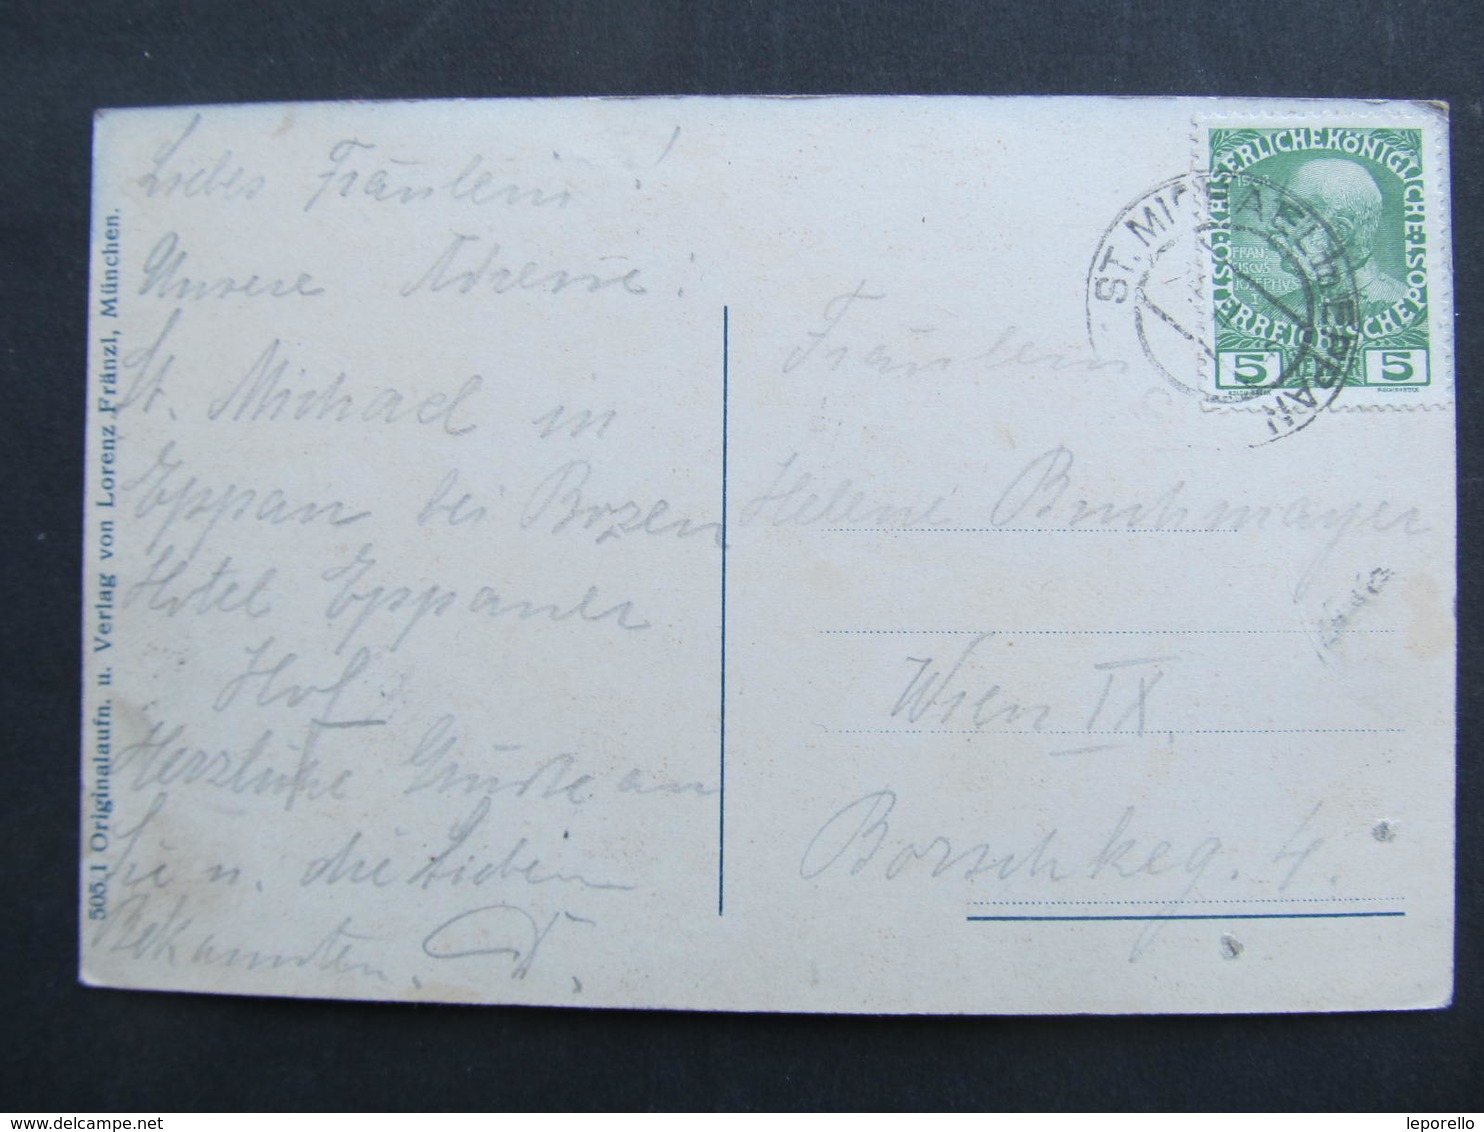 Liebes Fräulein!
Unsere Adresse:
St. Michael in
Eppan bei Bozen
Hotel Eppaner
Hof
Herzliche Grüße an
Sie u. die Lieben
Bekannten.
505,1 Originalaufn. u. Verlag von Lorenz Fränzl, München.
Fräulein
Helene Buchmayer
Wien IX.
Borschkeg. 4.
KAISERLICHE KÖNIGLICHE
ÖSTERREICHISCHE POST
FRAN
CISCVS
IOSEPHVS
I
5 HELLER 5
ST. MICHAEL in EPPAN
leporello